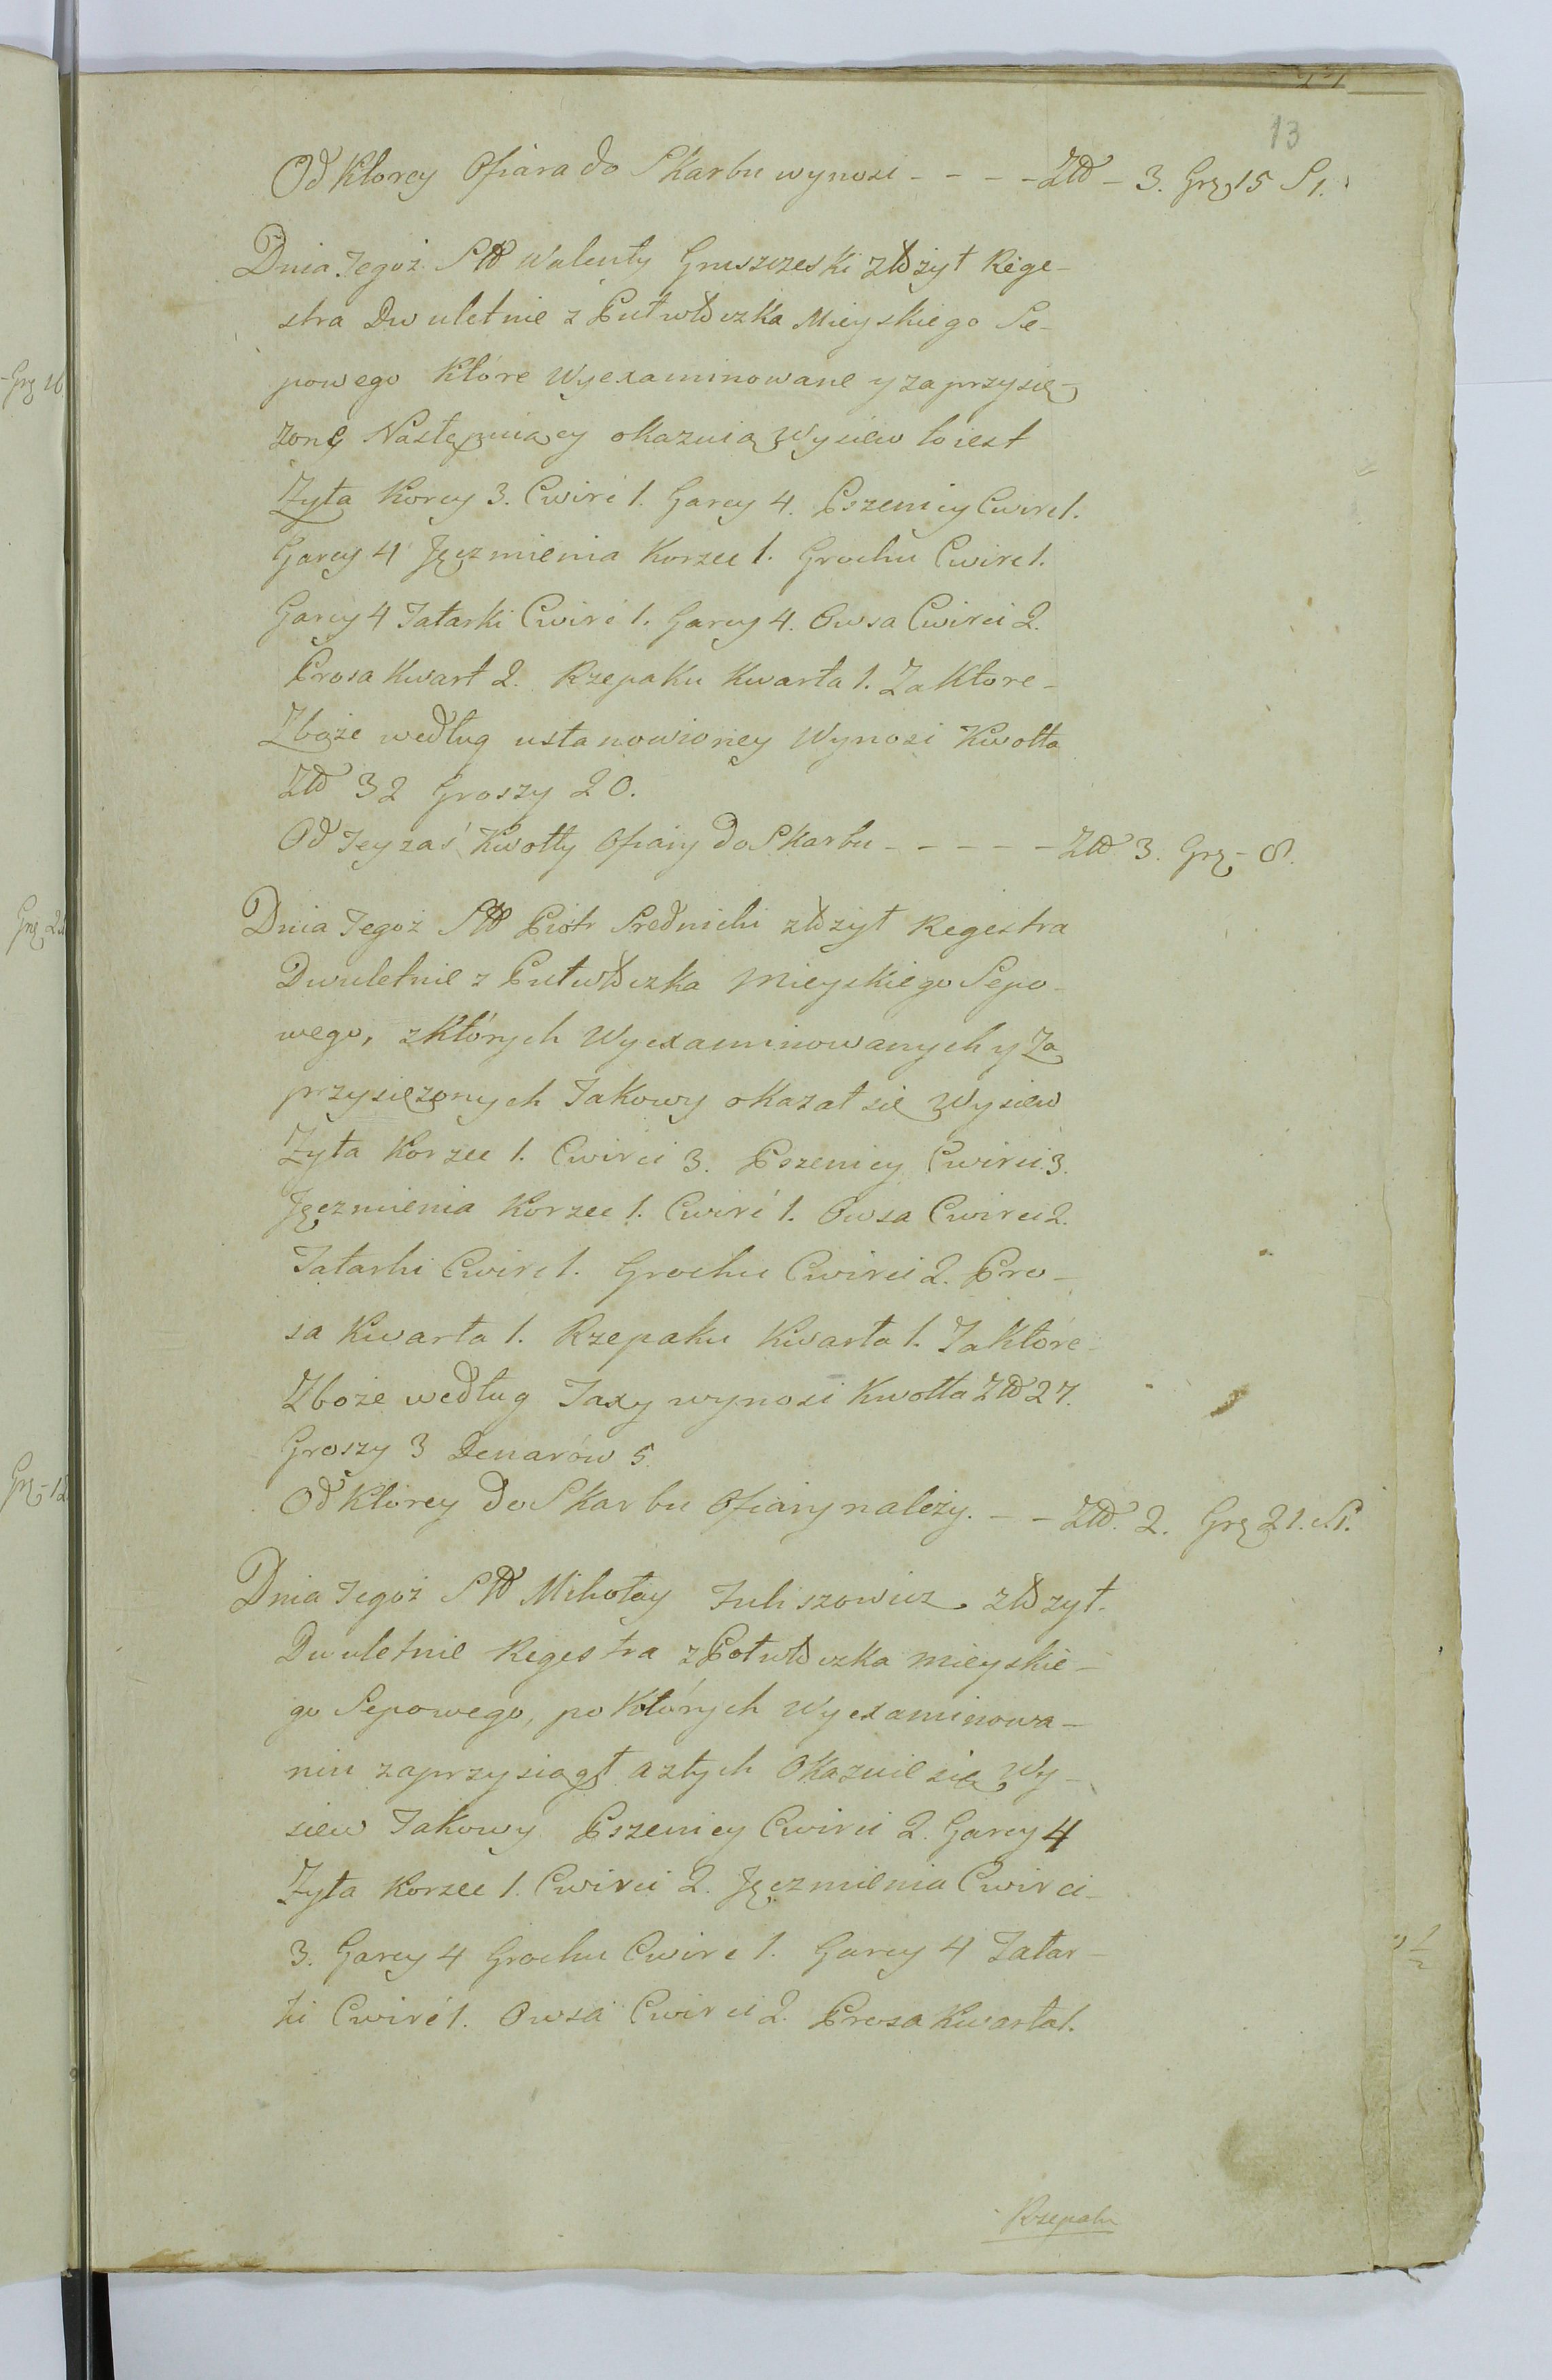 13
Od Ktorey Ofiara do Skarbu wynosi - - - - Złł - 3. Grz 15 S 1.
Dnia Tegoż Sł Walenty Gruszczeski złożył Rege-
stra Dwuletnie z Pułwłoczka Mieyskiego Se-
powego Które Wyexaminowane y zaprzysię-
żone Następuiący okazuią Wysiew to iest
Żyta Korcy 3. Cwirć 1. Garcy 4. Pszenicy Cwirć 1.
Garcy 4 Jęczmienia Korzec 1. Grochu Cwirć 1.
Garcy 4 Tatarki Cwirć 1. Garcy 4. Owsa Cwirci 2.
Prosa Kwart 2. Rzepaku Kwarta 1. Za Ktore-
Zboże według ustanowioney Wynosi Kwotta
Złł 32 Groszy 20.
Od Tey zaś Kwotty Ofiary do Skarbu - - - - - Złł 3. Grz - 8.
Dnia Tegoż Sł Piotr Srednicki złożył Regestra
Dwuletnie z Pułwłoczka Mieyskiego Sepo-
wego, z Których Wyexaminowanych y Za
przysiężonych Takowy okazał się Wysiew
Żyta Korzec 1. Cwirci 3. Pszenicy Cwirci 3.
Jęczmienia Korzec 1. Cwirć 1. Owsa Cwirci 2.
Tatarki Cwirć 1. Grochu Cwirci 2. Pro-
sa Kwarta 1. Rzepaku Kwarta 1. Za Ktore-
Zboże według Taxy wynosi Kwotta Złł 27.
Groszy 3 Denarów 5.
Od Ktorey do Skarbu Ofiary należy. - - Złł. 2. Grz 21. S 1.
Dnia Tegoż Sł Mikołay Juliszowicz złożył.
Dwuletnie Regestra z Połwłoczka mieyskie-
go Sepowego, po Których Wyexaminowa-
niu zaprzysiągł a z tych Okazuie się Wy-
siew Takowy Pszenicy Cwirci 2. Garcy 4
Żyta Korzec 1. Cwirci 2. Jęczmienia Cwirci-
3. Garcy 4 Grochu Cwirć 1. Garcy 4 Tatar-
ki Cwirć 1. Owsa Cwirci 2. Prosa Kwarta 1.
Rzepaku